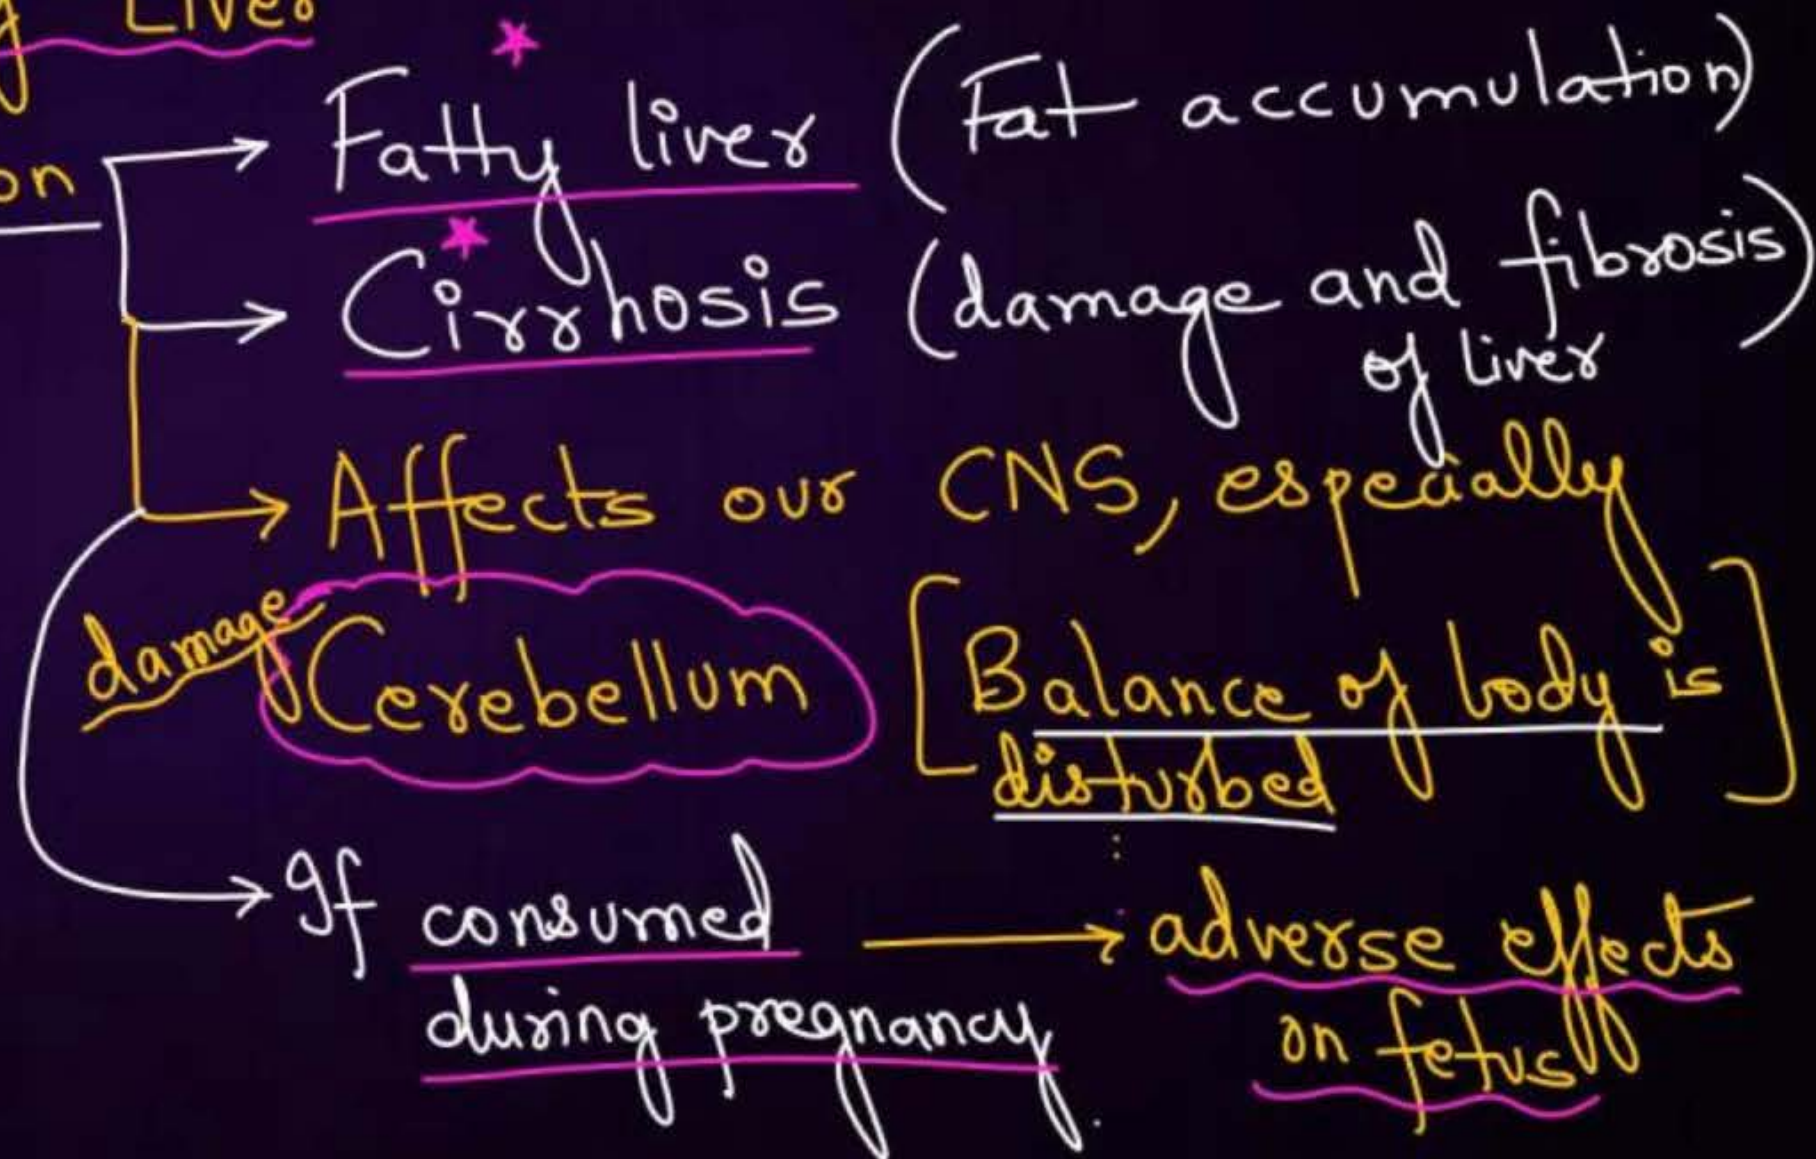 Liver
Fatty liver (Fat accumulation)
Cirrhosis (damage and fibrosis)
of liver
Affects our CNS, especially
damage Cerebellum [Balance of body is
disturbed]
If consumed → adverse effects
during pregnancy. on fetus